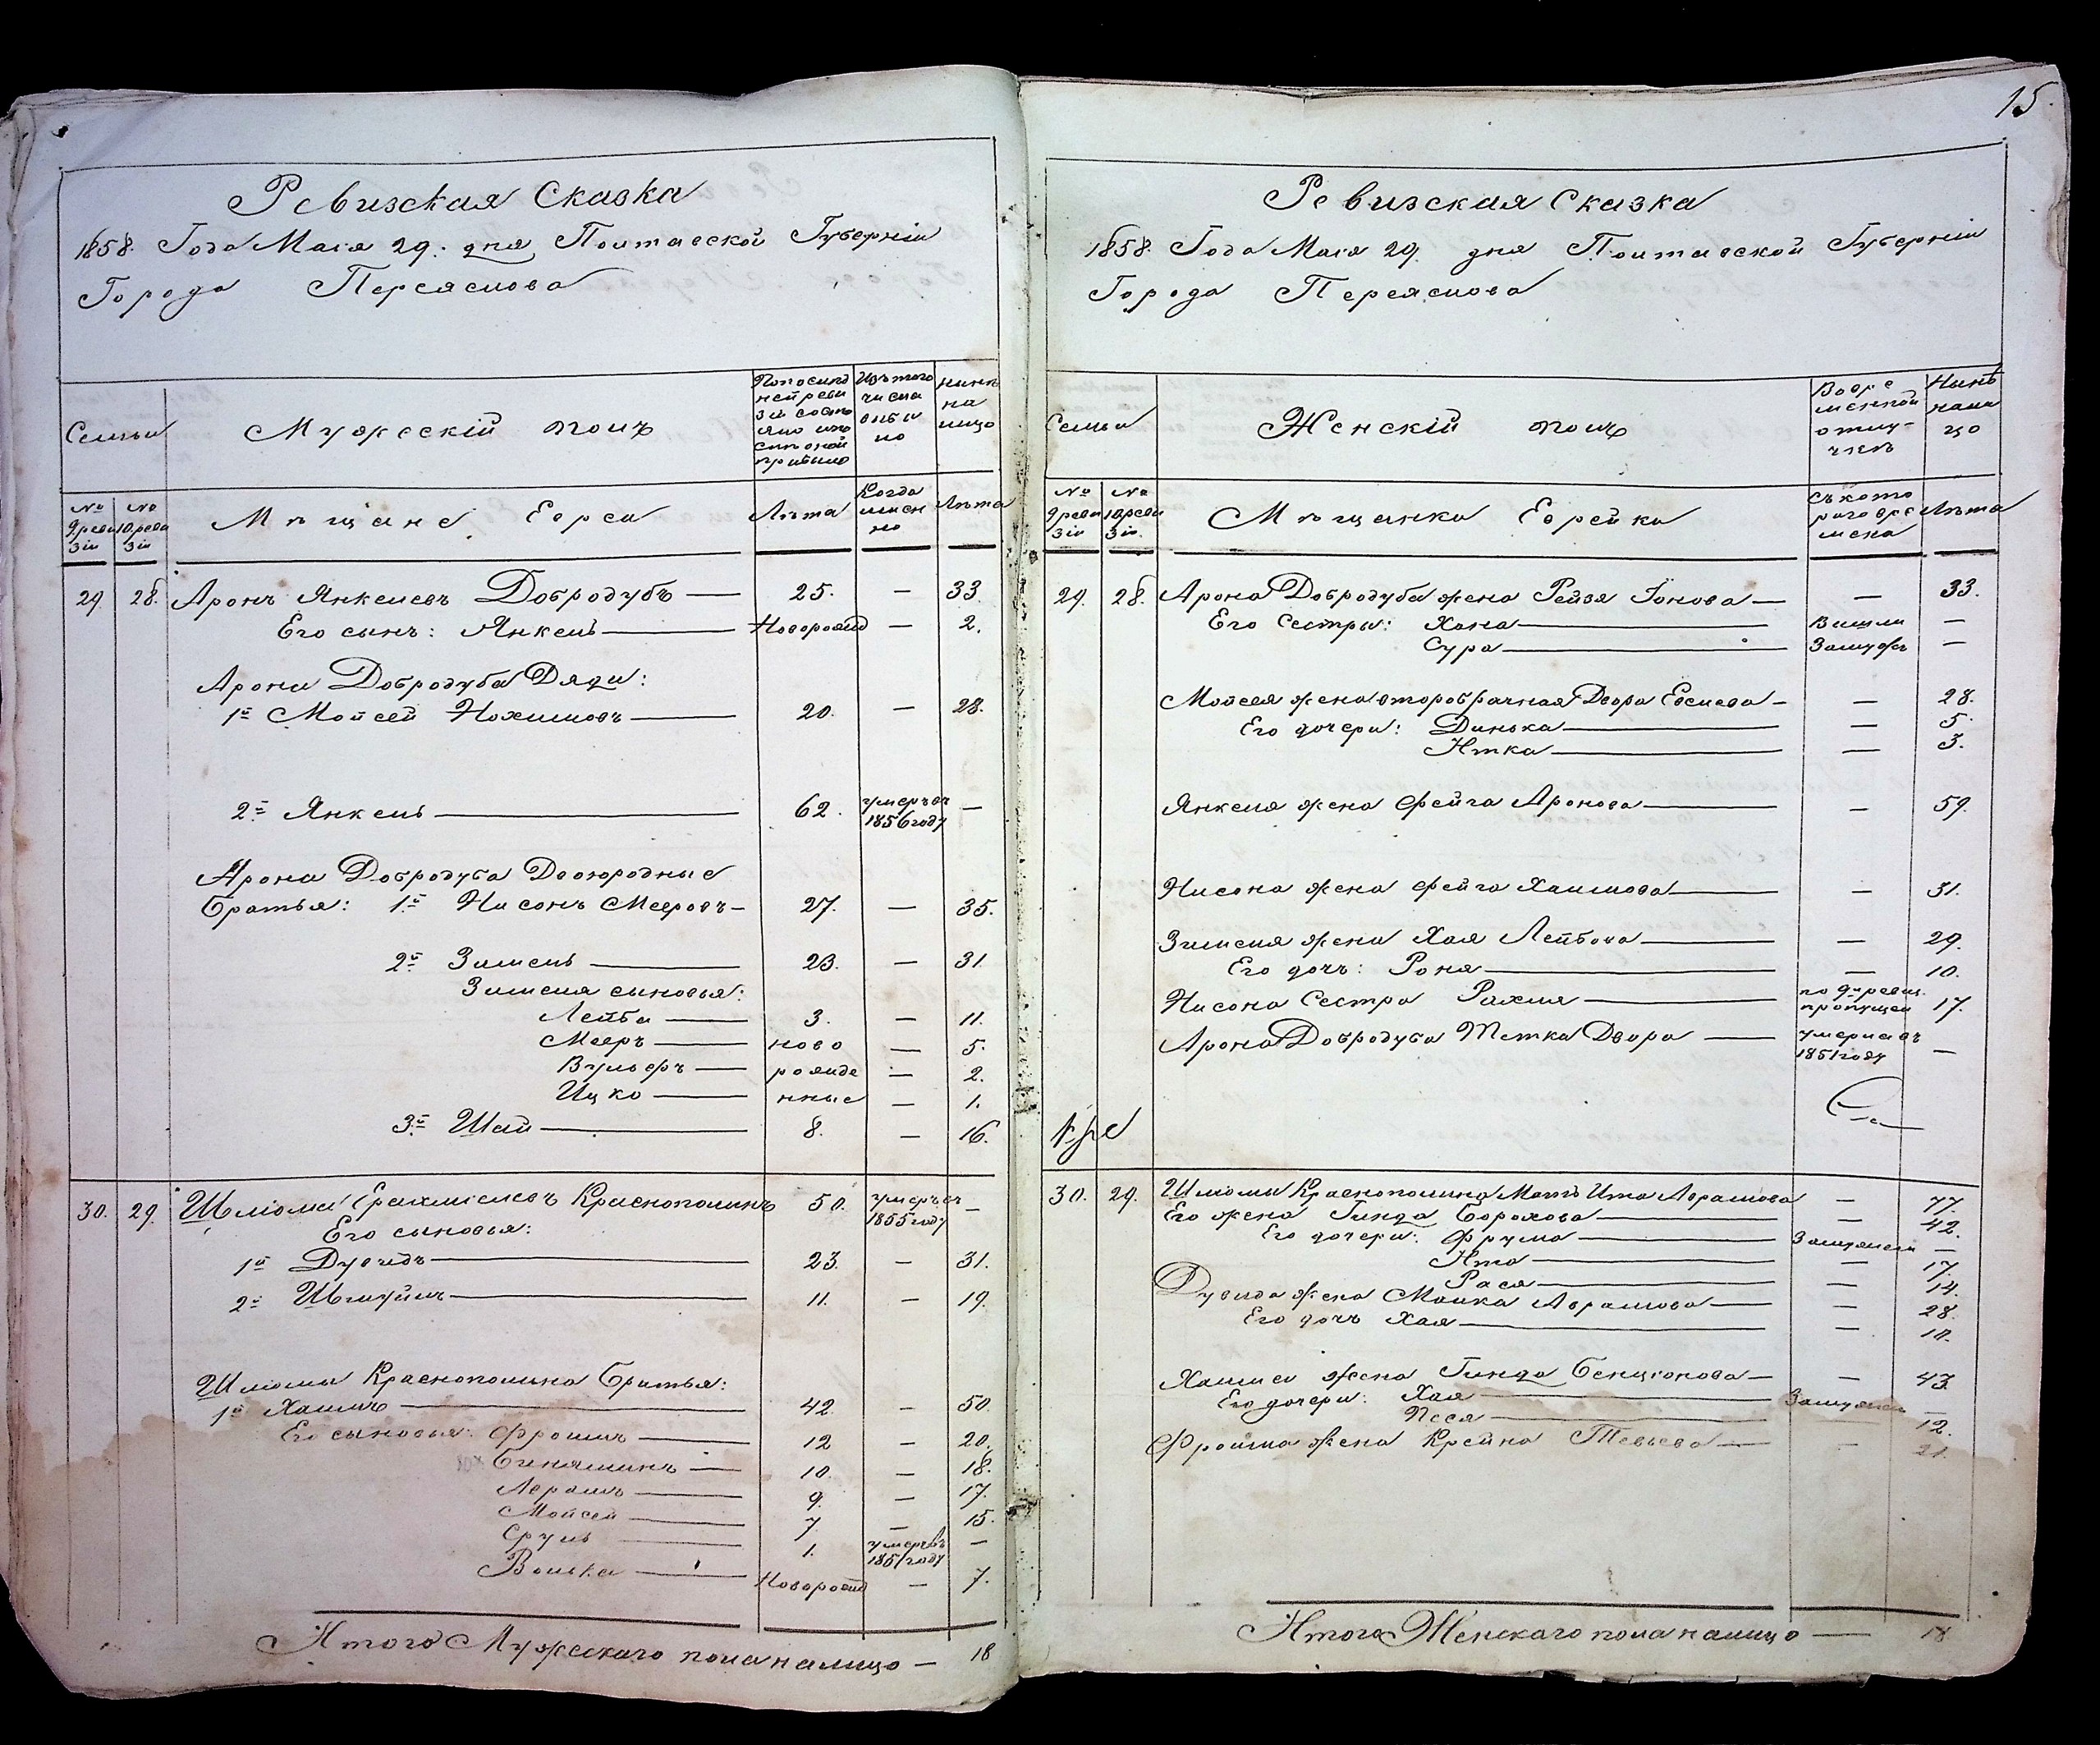 Ревизская Сказка
1858. Года Маія 29. дня Полтавской Губерніи
Города Переяслова
Семьи
Мужескій полъ
По послѣд
ней реви
зіи состо
яло или
послѣ оной
прибыло
Изъ того
числа
выбы
ло
Нынѣ
на
лицо
№ 9 реви зіи
№ 10 реви зіи
Мѣщане Евреи
Лѣта
Когда
имен
но
Лѣта
29. 28. Аронъ Янкелевъ Добродубъ — 25. — 33.
Его сынъ: Янкель — Новорожд — 2.
Арона Добродуба Дяди:
1й Мойсей Нохимовъ — 20. — 28.
2й Янкель — 62. умеръ въ 1856 году —
Арона Добродуба Двоюродные
Братья: 1й Нисонъ Мееровъ — 27. — 35.
2й Зимель — 23. — 31.
Зимеля сыновья:
Лейба — 3. — 11.
Мееръ — ново — 5.
Вульфъ — рожде — 2.
Ицко — нные — 1.
3й Шая — 8. — 16.
30. 29. Шліома Ерахміелевъ Краснополинъ 50. умеръ въ 1855 году —
Его сыновья:
1й Дувидъ — 23. — 31.
2й Шмуйлъ — 11. — 19.
Шліомы Краснополина Братья:
1й Хаимъ — 42. — 50.
Его сыновья: Фроимъ — 12 — 20.
Биняминъ — 10. — 18.
Аврамъ — 9. — 17.
Мойсей — 7. — 15.
Сруль — 1. умеръ въ 1851 году —
Волька — Новорожд — 7.
Итого Мужескаго пола налицо — 18
15.
Ревизская Сказка
1858. Года Маія 29. дня Полтавской Губерніи
Города Переяслова
Семьи
Женскій полъ
Во вре
менной
отлу-
чкѣ
Нынѣ
нали
цо
№ 9 реви зіи
№ 10 реви зіи.
Мѣщанки Еврейки
съ кото
раго вре
мена
Лѣта
29. 28. Арона Добродуба жена Рейзя Іонова — — 33.
Его Сестры: Хана — Вышли —
Сура — Замужъ —
Мойсея жена второбрачная Двора Евсиева — — 28.
Его дочери: Динька — — 5.
Итка — — 3.
Янкеля жена Фейга Аронова — — 59.
Нисона жена Фейга Хаимова — — 31.
Зимеля жена Хая Лейбова — — 29.
Его дочь: Роня — — 10.
Нисона Сестра Рахля — по 9й ревиз. пропущен 17.
Арона Добродуба Тетка Двора — умерла въ 1851 году —
30. 29. Шліомы Краснополина Мать Ита Аврамова — 77.
Его жена Гинда Борохова — — 42.
Его дочери: Фрума — Замужем —
Ита — — 17.
Рася — — 14.
Дувида жена Малка Аврамова — — 28.
Его дочь Хая — — 10.
Хаима жена Гинда Бенционова — — 43
Его дочери: Хая — Замужем —
Песя — 12.
Фроима жена Крейна Тевьева — — 21.
Итого Женскаго пола налицо — 18